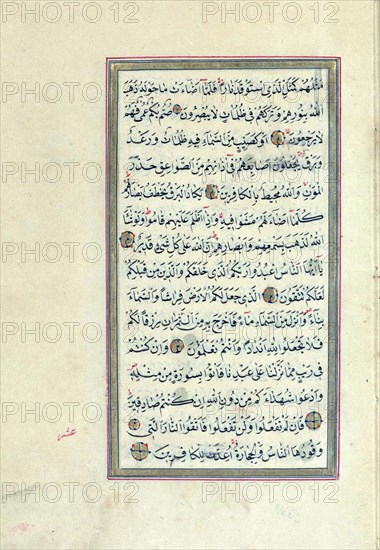 مثلهم كمثل الذي استوقد نارا فلما اضاءت ما حوله ذهب
الله بنورهم وتركهم في ظلمات لا يبصرون صم بكم عمي فهم
لا يرجعون او كصيب من السماء فيه ظلمات ورعد
وبرق يجعلون اصابعهم في اذانهم من الصواعق حذر
الموت والله محيط بالكافرين يكاد البرق يخطف ابصارهم
كلما اضاء لهم مشوا فيه واذا اظلم عليهم قاموا ولو شاء
الله لذهب بسمعهم وابصارهم ان الله على كل شيء قدير
يا ايها الناس اعبدوا ربكم الذي خلقكم والذين من قبلكم
لعلكم تتقون الذي جعل لكم الارض فراشا والسماء
بناء وانزل من السماء ماء فاخرج به من الثمرات رزقا لكم
فلا تجعلوا لله اندادا وانتم تعلمون وان كنتم
في ريب مما نزلنا على عبدنا فاتوا بسورة من مثله
وادعوا شهداءكم من دون الله ان كنتم صادقين
فان لم تفعلوا ولن تفعلوا فاتقوا النار التي
وقودها الناس والحجارة اعدت للكافرين
عشر
PHOTO12